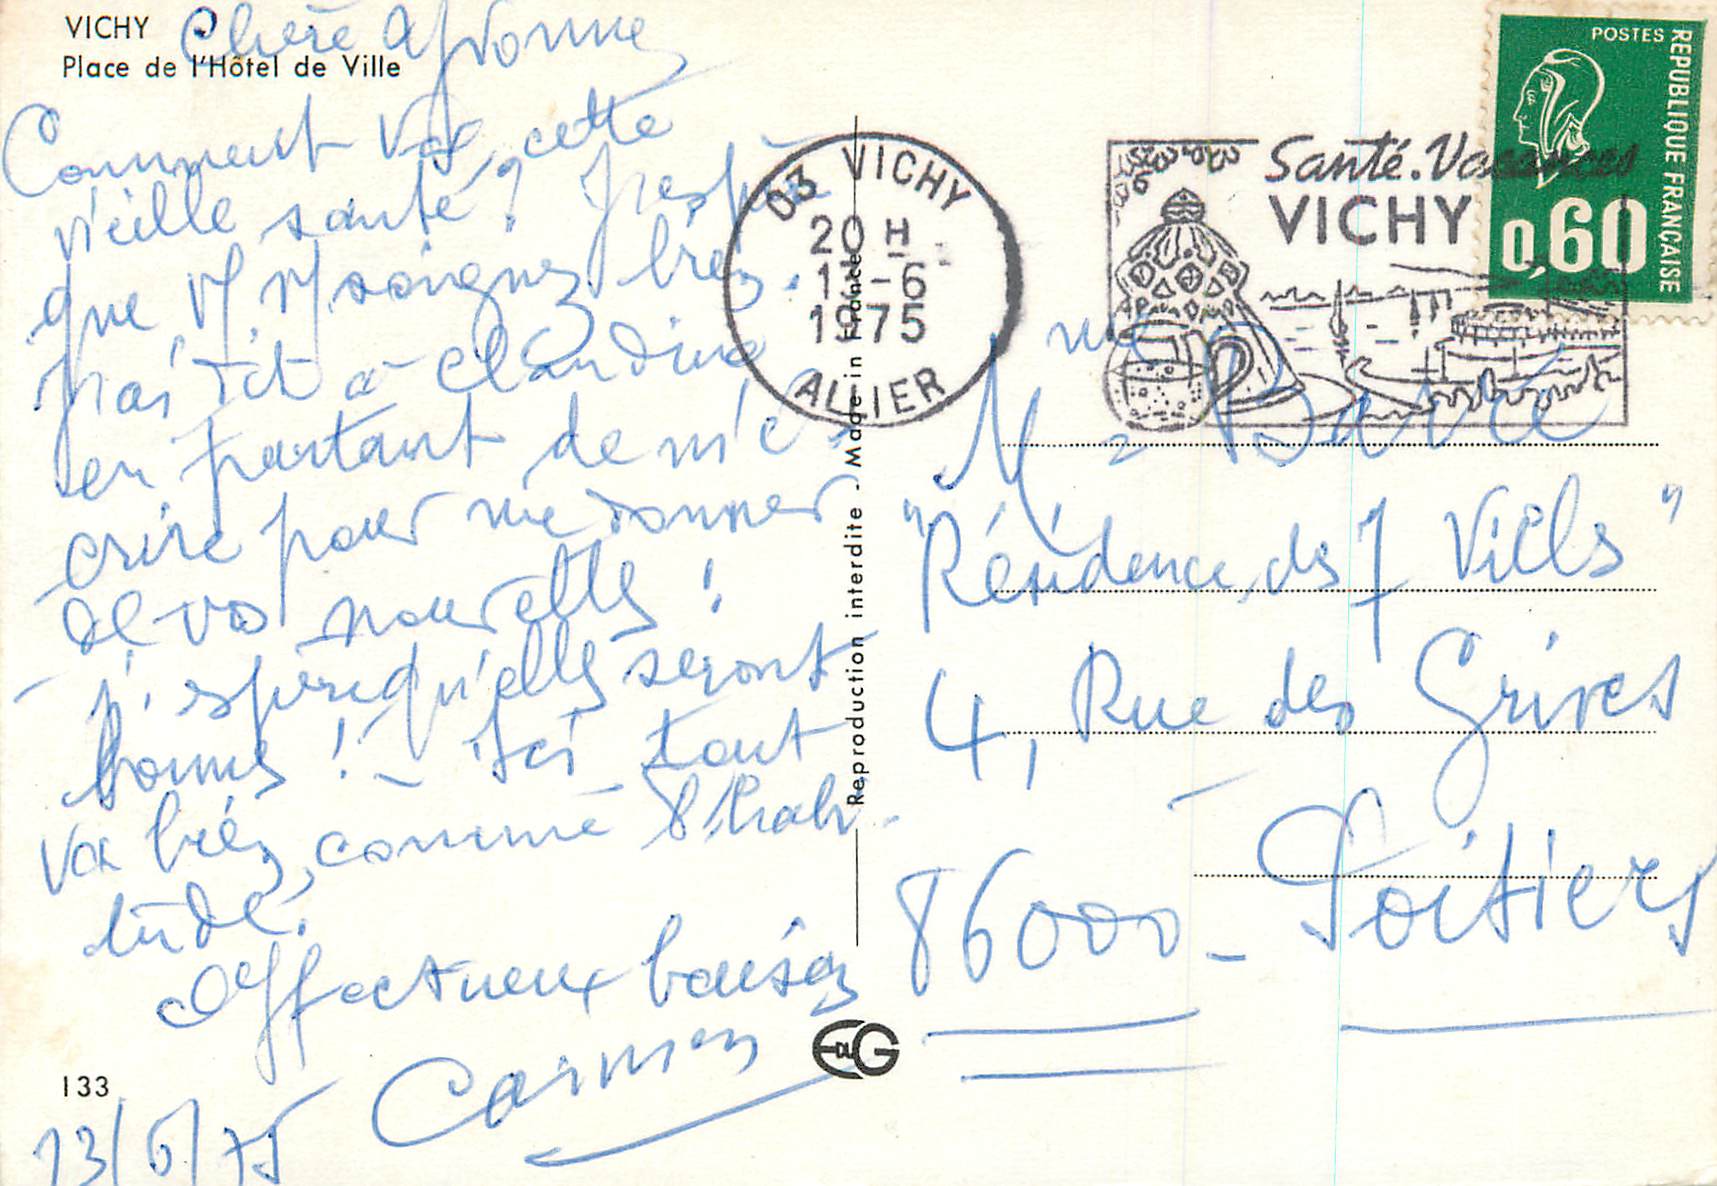 VICHY
Place de l'Hôtel de Ville
Chère Yvonne
Comment va cette
vieille santé ? J'espère
que v/ v/ soignez bien.
J'ai dit à Claudine
en partant de m'é-
crire pour me donner
de vos nouvelles !
j'espère qu'elles seront
bonnes ! - Ici tout
va bien, comme d'habi-
tude.
Affectueux baisers
Carmen
133
13/6/75
Reproduction interdite - Made in France
03 VICHY
20 H
13-6
1975
ALLIER
Santé. Vacances
VICHY
POSTES
REPUBLIQUE FRANÇAISE
0,60
Mme
"Résidence des 7 Vills"
4, Rue des Grives
86000 - Poitiers
EG